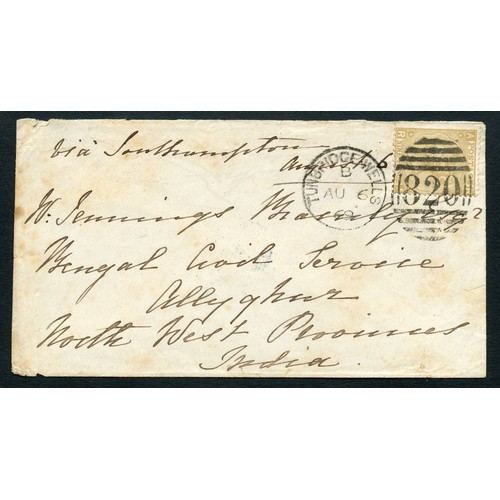 via Southampton
Aug 6
TUNBRIDGE-WELLS
B
AU 6
820
W. Jennings Bramly
Bengal Civil Service
Allyghur
North West Provinces
India.